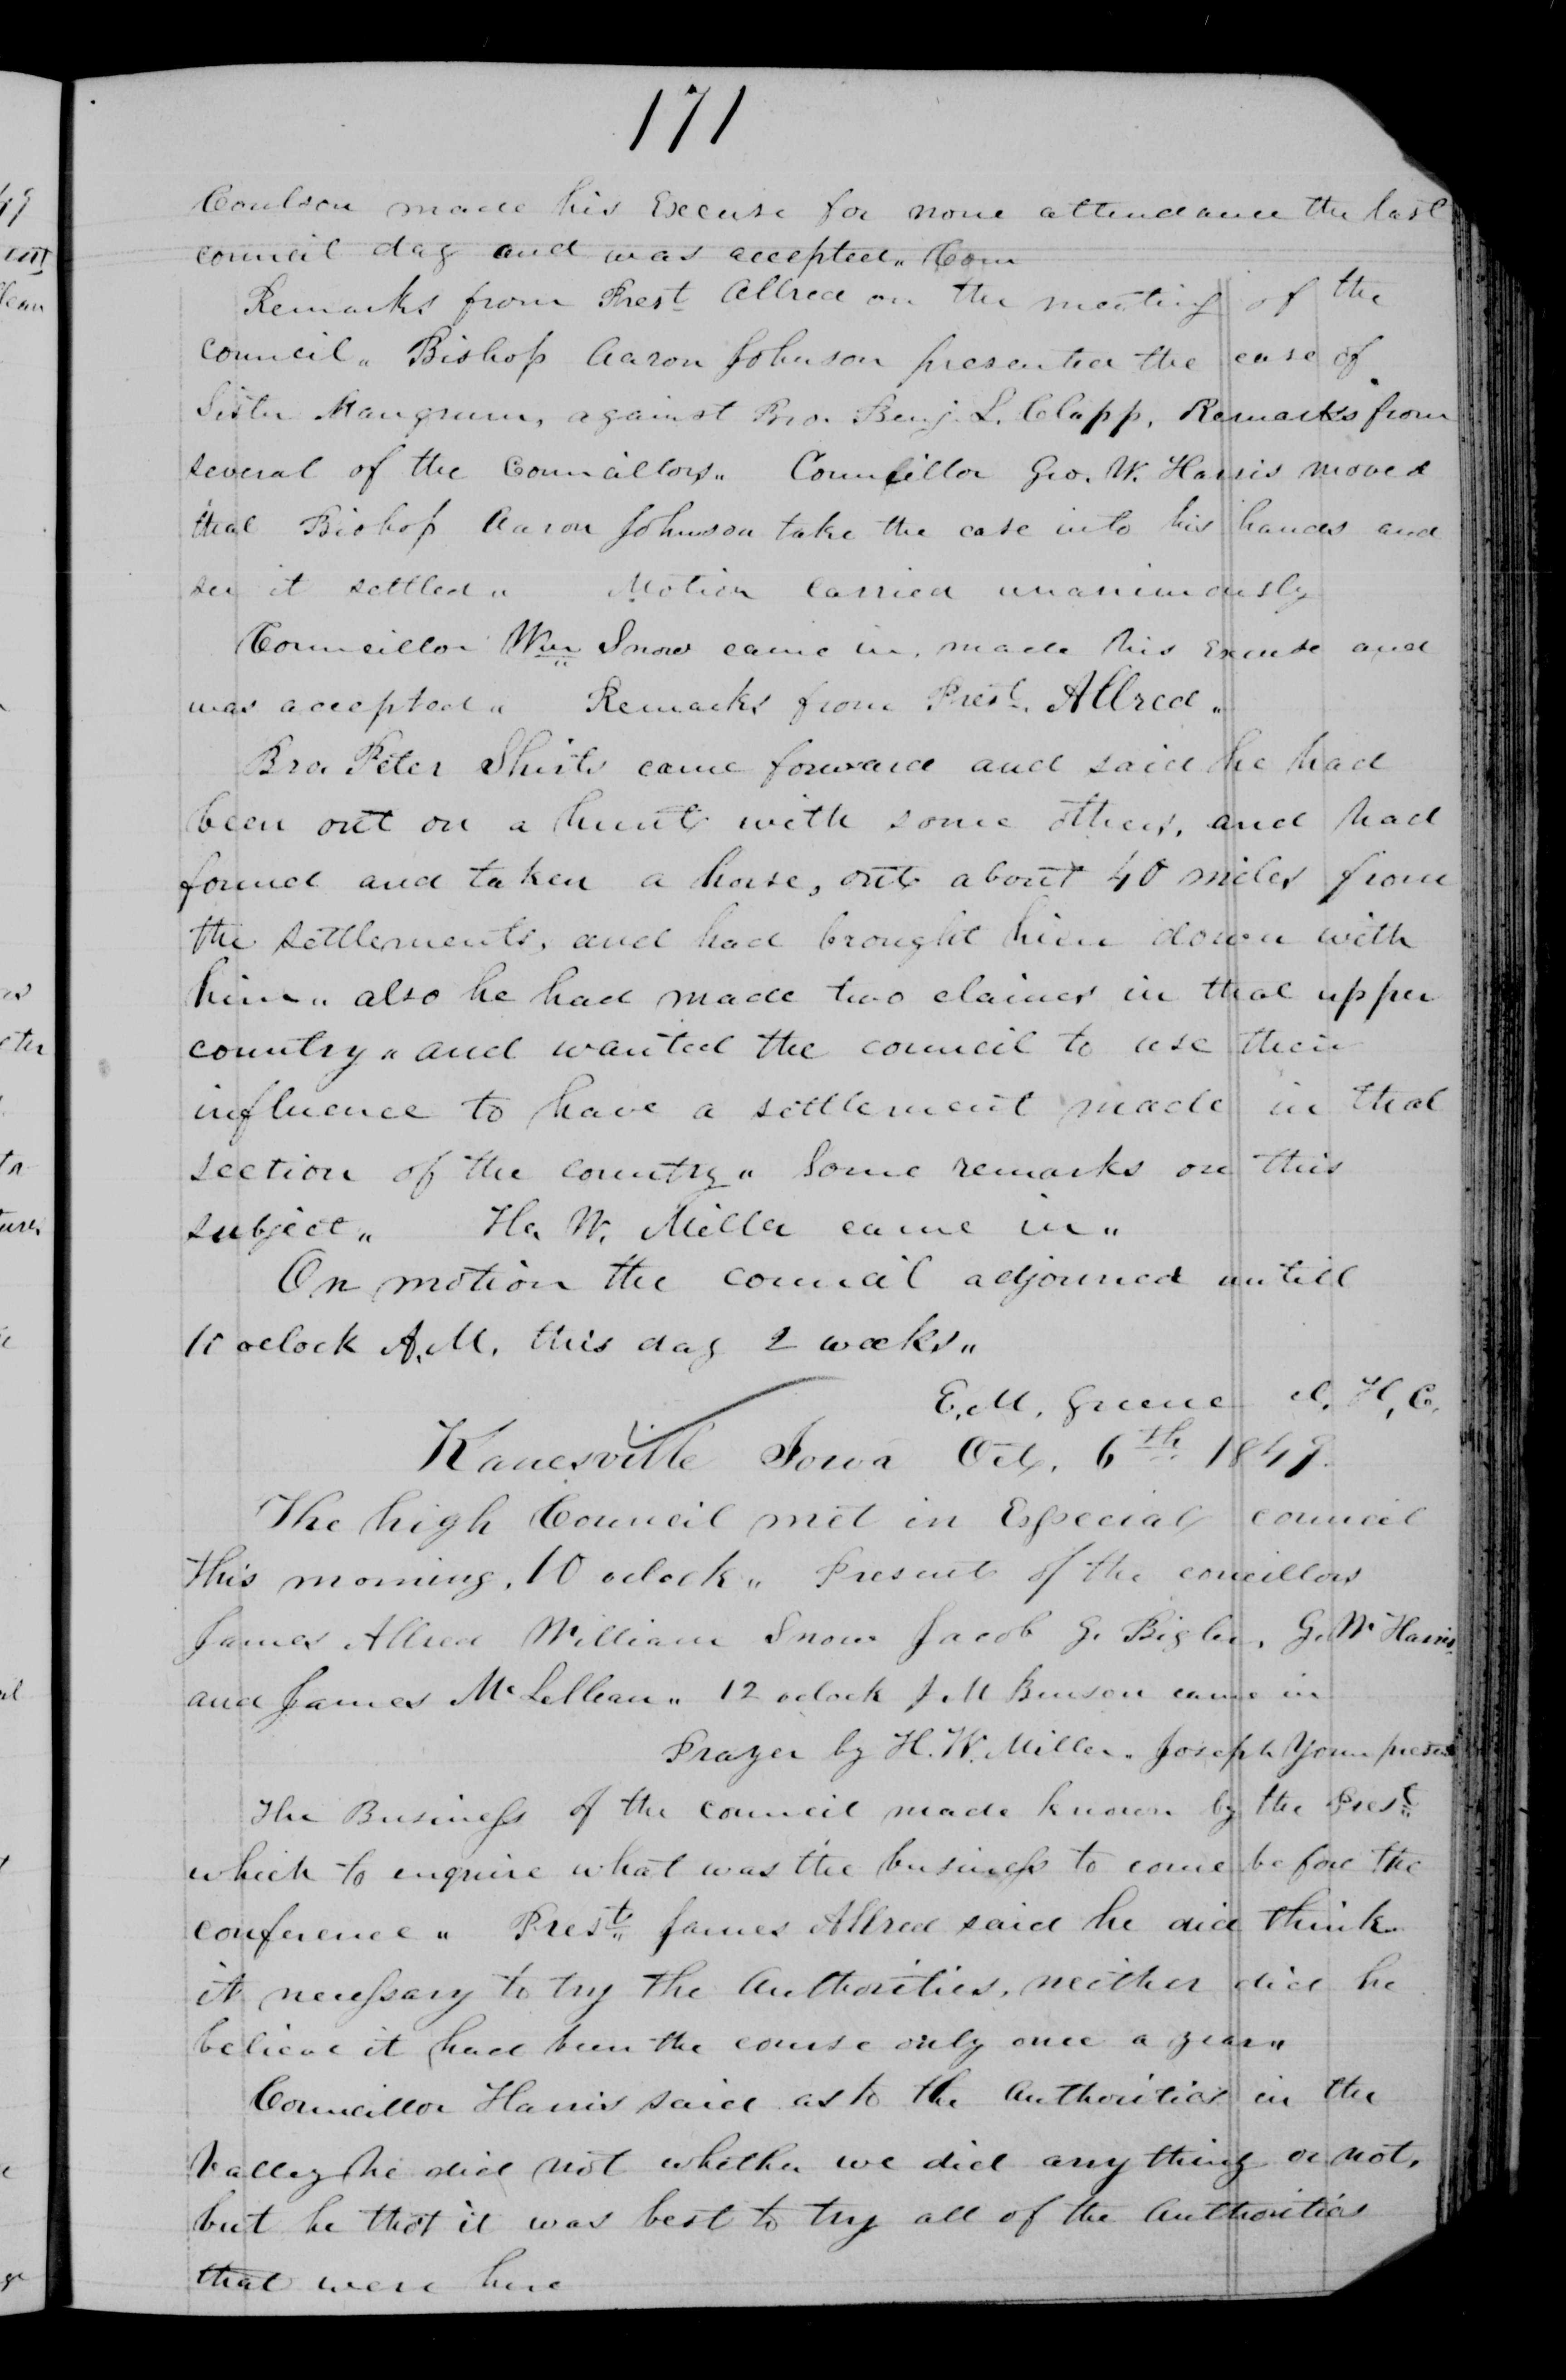 171
Coulson made his Excuse for none attendance the last
council day and was accepted„ Com
Remarks from Prest Allred on the meeting of the
council„ Bishop Aaron Johnson presented the case of
Sister Mangrum, against Bro. Benj. L. Clapp, Remarks from
several of the Councillors„ Councillor Geo. W. Harris moved
that Bishop Aaron Johnson take the case into his hands and
see it settled„ Motion carried unanimously
Councillor Wm Snow came in, made his Excuse and
was accepted„ Remarks from Prest. Allred„
Bro Peter Shirts came forward and said he had
been out on a hunt with some others, and had
found and taken a horse, out about 40 miles from
the settlements, and had brought him down with
him„ also he had made two claims in that upper
country„ and wanted the council to use their
influence to have a settlement made in that
section of the country„ Some remarks on this
subject„ H. W. Miller came in„
On motion the council adjourned untill
10 oclock A.M. this day 2 weeks„
E. M. Greene C. H. C.
Kanesville Iowa Oct. 6th 1849.
The high Council met in Especial council
this morning, 10 oclock„ Present of the concillors
James Allred William Snow Jacob G. Bigler, G. W Harris
and James McLellean„ 12 oclock J M Benson came in
Prayer by H. W. Miller„ Joseph Youn present
The Business of the council made known by the Prest
which to enquire what was the business to come before the
conference„ Prest James Allred said he did think
it necessary to try the Authorities, neither did he
believe it had been the course only once a year„
Councillor Harris said as to the Authorities in the
Valley he did not whether we did any thing or not,
but he thot it was best to try all of the Authorities
that were here